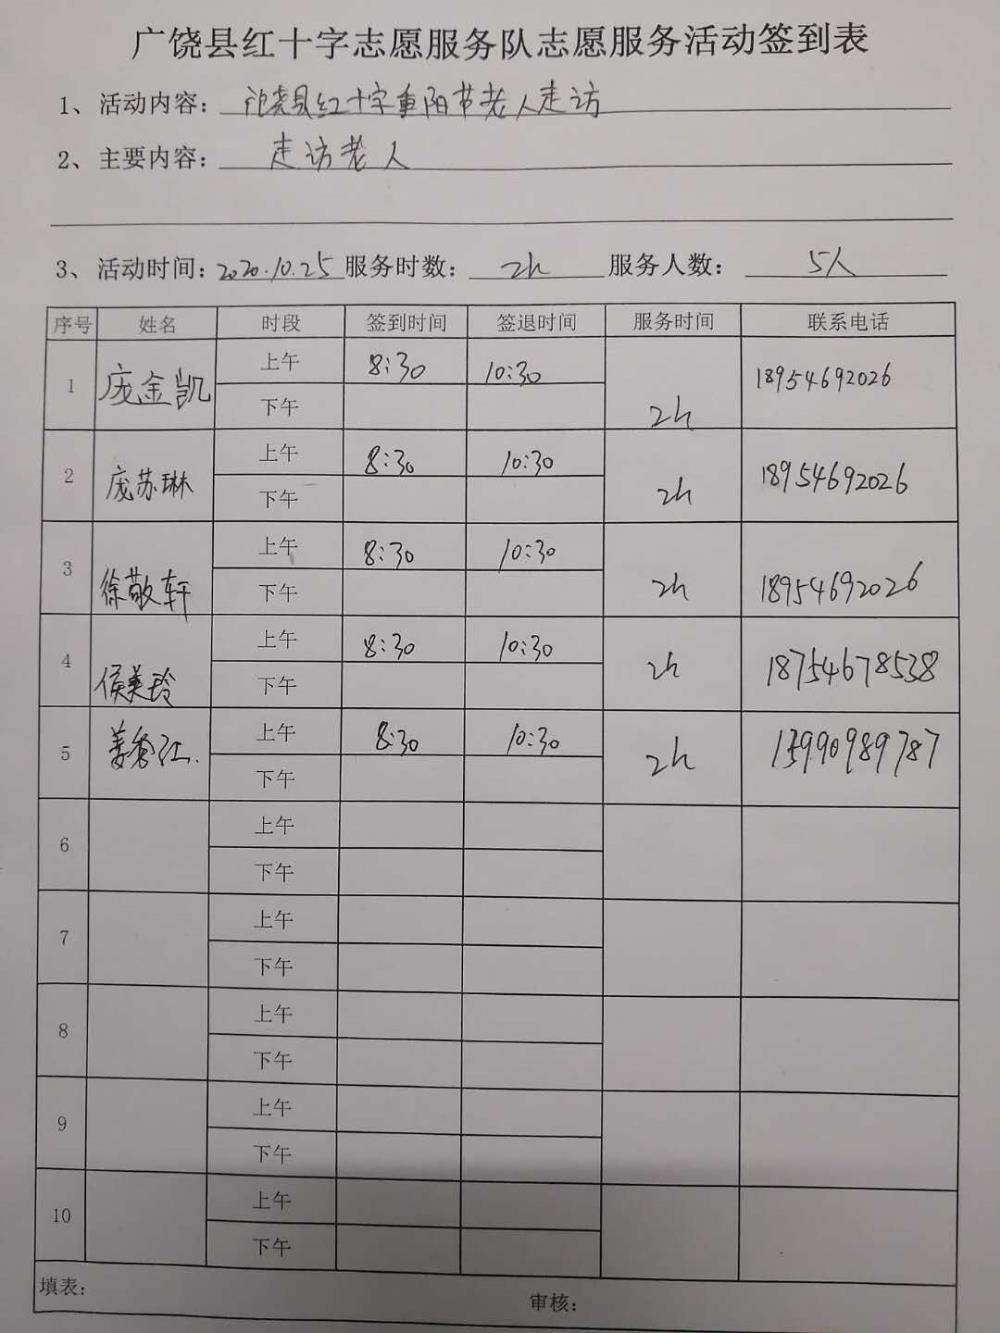 广饶县红十字志愿服务队志愿服务活动签到表
1、活动内容：广饶县红十字重阳节老人走访
2、主要内容：走访老人
3、活动时间：2020.10.25 服务时数：2h 服务人数：5人
序号 姓名 时段 签到时间 签退时间 服务时间 联系电话
1 庞金凯 上午 8:30 10:30 2h 18954692026
下午
2 庞苏琳 上午 8:30 10:30 2h 18954692026
下午
3 徐敬轩 上午 8:30 10:30 2h 18954692026
下午
4 侯美玲 上午 8:30 10:30 2h 18754678538
下午
5 姜秀江 上午 8:30 10:30 2h 13990989787
下午
6 上午
下午
7 上午
下午
8 上午
下午
9 上午
下午
10 上午
下午
填表： 审核：